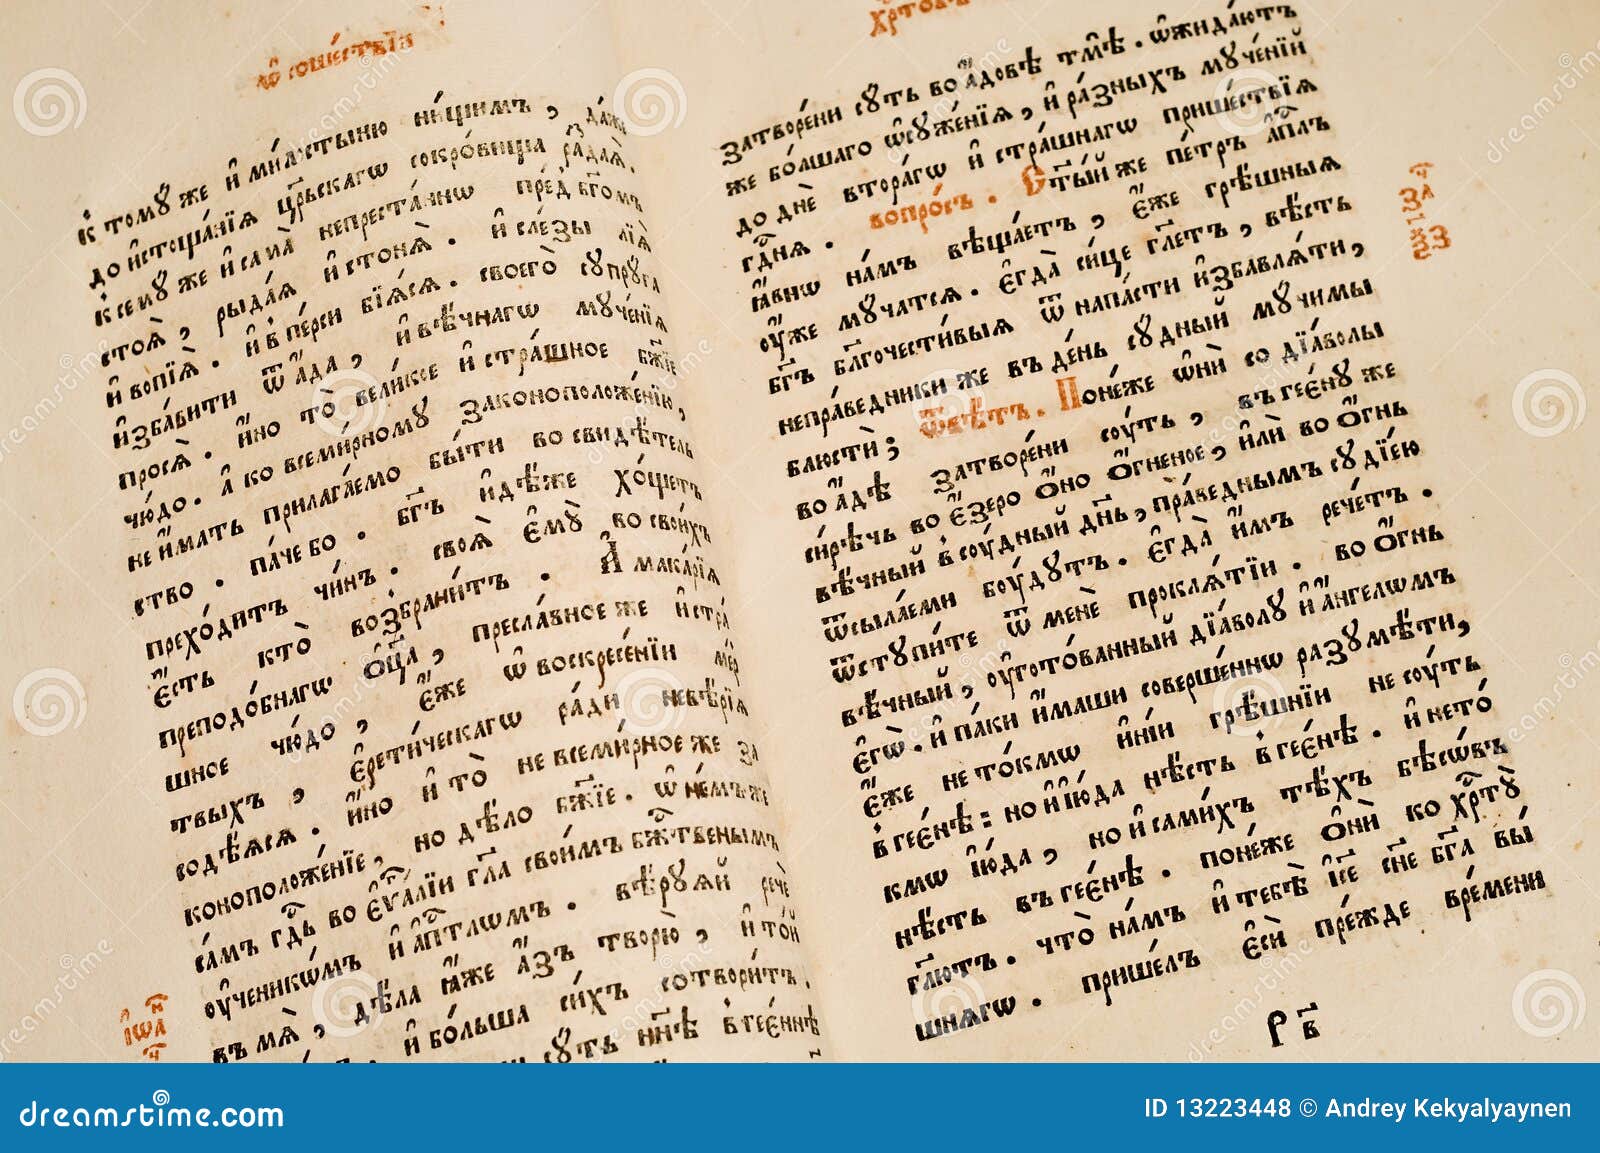 ѡ҆ сошествїи
к томꙋ же и҆ милостыню нищимъ , да́же
до и҆стоща́нїѧ цр҃ьскагѡ сокро́вища ра́здаѧ̀.
к семꙋ же и҆ сама̀ непреста́ннѡ пред̾ бг҃омъ
стоѧ̀ , рыда́ѧ и҆ стонѧ̀ . и҆ сле́зы лїѧ̀
и҆ вопїѧ̀ . и҆ в пе́рси бїѧ́сѧ . своего̀ сꙋпрꙋ́га
и҆зба́вити ѿ а҆́да , и҆ вѣ́чнагѡ мꙋче́нїѧ
просѧ̀ . и҆́но то̀ вели́кое и҆ стра́шное бж҃їе
чю́до . а҆ ко всеми́рномꙋ законоположе́нїю ,
не и҆́мать прилага́емо бы́ти во свидѣ́тель
ство . па́че бо . бг҃ъ и҆дѣ́же хо́щетъ
прехо́дитъ чи́нъ . своѧ̀ є҆мꙋ̀ во свои́хъ
є҆́сть кто̀ возбрани́тъ . А҆ мака́рїѧ
преподо́бнагѡ ѻ҆ц҃а̀ , пресла́вное же и҆ стра́
шное чю́до , є҆́же ѡ҆ воскресе́нїи ме́р
твыхъ , є҆рети́ческагѡ ра́ди невѣ́рїѧ
содѣ́ѧсѧ . и҆́но и҆ то̀ не всеми́рное же за
коноположе́нїе , но дѣ́ло бж҃їе . ѡ҆ не́мъ же
са́мъ гд҃ь во є҆ѵⷢ҇а́лїи гл҃а свои́мъ бж҃твенымъ
ᲂу҆ченикѡ́мъ и҆ а҆пⷭ҇тлѡмъ . вѣ́рꙋѧй речѐ
въ мѧ̀ , дѣ́ла ꙗ҆́же а҆́зъ творю̀ , и҆ то́й
и҆ бо́льша си́хъ сотвори́тъ .
сꙋ́ть нн҃ѣ в̾ гее́ннѣ
і҆ѡа́н
хрⷭ҇то́въ
затворе́ни сꙋ́ть во а҆́довѣ тмѣ̀ . ѡ҆жида́ютъ
же бо́лшаго ѡ҆сꙋжде́нїѧ , и҆ ра́зныхъ мꙋче́нїй
до днѐ втора́гѡ и҆ стра́шнагѡ прише́ствїѧ
гдⷭ҇нѧ . вопро́съ . Ст҃ы́й же пе́тръ а҆пⷭ҇лъ
ꙗ҆́внѡ на́мъ вѣща́етъ , є҆́же грѣ́шныѧ
ᲂу҆́же мꙋ́чатсѧ . є҆гда̀ си́це гл҃етъ , вѣ́сть
бг҃ъ бл҃гочести́выѧ ѿ напа́сти и҆збавлѧ́ти ,
непра́ведники же въ де́нь сꙋ́дный мꙋчимы
блюстѝ ; ѿвѣ́тъ . Поне́же ѻ҆нѝ со дїа́волы
во а҆́дѣ затворе́ни сꙋ́ть , въ гее́нꙋ же
си́рѣчь во є҆́зеро ѻ҆́но ѻ҆́гненое , и҆лѝ во ѻ҆́гнь
вѣ́чный в̾ сꙋ́дный дн҃ь , пра́веднымъ сꙋдїе́ю
ѿсыла́еми бꙋ́дꙋтъ . є҆гда̀ и҆́мъ рече́тъ .
ѿстꙋпи́те ѿ менѐ проклѧ́тїи . во ѻ҆́гнь
вѣ́чный , ᲂу҆гото́ванный дїа́волꙋ и҆ а҆́нгелѡмъ
є҆гѡ̀ . и҆ па́ки и҆́маши соверше́ннѡ разꙋмѣ́ти ,
є҆́же не то́кмѡ и҆нїи грѣ́шнїи не сꙋ́ть
в̾ гее́нѣ : но и҆ і҆ю́да нѣ́сть в̾ гее́нѣ . и҆ не то́
кмѡ і҆ю́да , но и҆ сами́хъ тѣ́хъ бѣсѡ́въ
нѣ́сть въ гее́нѣ . поне́же ѻ҆нѝ ко хрⷭ҇тꙋ̀
гл҃ютъ . что̀ на́мъ и҆ тебѣ̀ і҆и҃се сн҃е бг҃а вы́
шнѧгѡ . прише́лъ є҆сѝ пре́жде вре́мени
за҃
рв҃
dreamstime.com
ID 13223448 © Andrey Kekyalyaynen